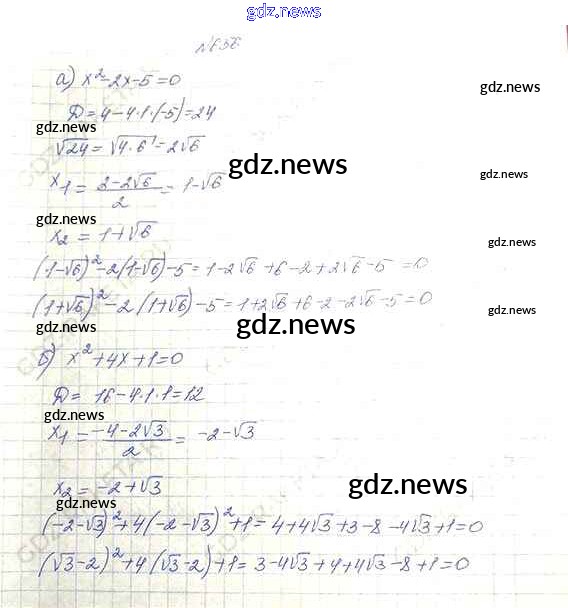 gdz.news
№656
а) x² - 2x - 5 = 0
gdz.news
D = 4 - 4·1·(-5) = 24
gdz.news
√24 = √4·6 = 2√6
gdz.news
x₁ = (2 - 2√6)/2 = 1 - √6
gdz.news
gdz.news
x₂ = 1 + √6
gdz.news
(1-√6)² - 2(1-√6) - 5 = 1 - 2√6 + 6 - 2 + 2√6 - 5 = 0
(1+√6)² - 2(1+√6) - 5 = 1 + 2√6 + 6 - 2 - 2√6 - 5 = 0
gdz.news
gdz.news
gdz.news
б) x² + 4x + 1 = 0
D = 16 - 4·1·1 = 12
gdz.news
x₁ = (-4 - 2√3)/2 = -2 - √3
x₂ = -2 + √3
gdz.news
gdz.news
(-2-√3)² + 4(-2-√3)² + 1 = 4 + 4√3 + 3 - 8 - 4√3 + 1 = 0
(√3-2)² + 4(√3-2) + 1 = 3 - 4√3 + 4 + 4√3 - 8 + 1 = 0